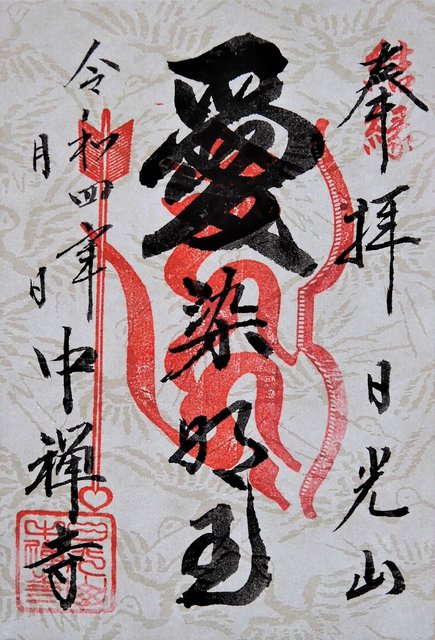 奉拝 日光山
結縁
愛染明王
令和四年 月 日
中禅寺